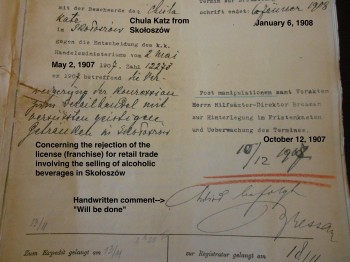 mit der Beschwerde des Chula
Katz
in Skołoszów
gegen die Entscheidung des k.k.
2. Mai
1907, Zahl 12278
ex 1907 betreffend die Ver-
weigerung der Konzession
zum Kleinhandel mit
geistigen
Getränken in Skołoszów
Chula Katz from
Skołoszów
May 2, 1907
Concerning the rejection of the
license (franchise) for retail trade
involving the selling of alcoholic
beverages in Skoloszów
Handwritten comment-->
"Will be done"
Zum Expedit gelangt am
schrift endet: 6 Jänner 1908
January 6, 1908
Post manipulationem samt Vorakten
Herrn Hilfsämter-Direktor Bressar
zur Hinterlegung im Fristenkasten
und Ueberwachung des Termines.
October 12, 1907
10/12 1907
Wird befolgt
Bressar
zur Registratur gelangt am 18/11